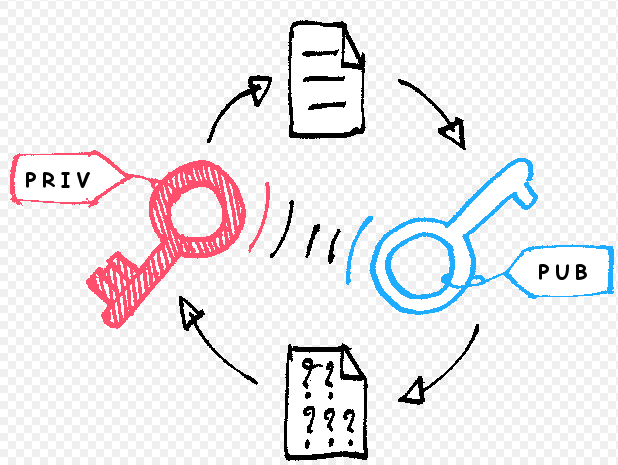 PRIV
PUB
? ?
? ? ?